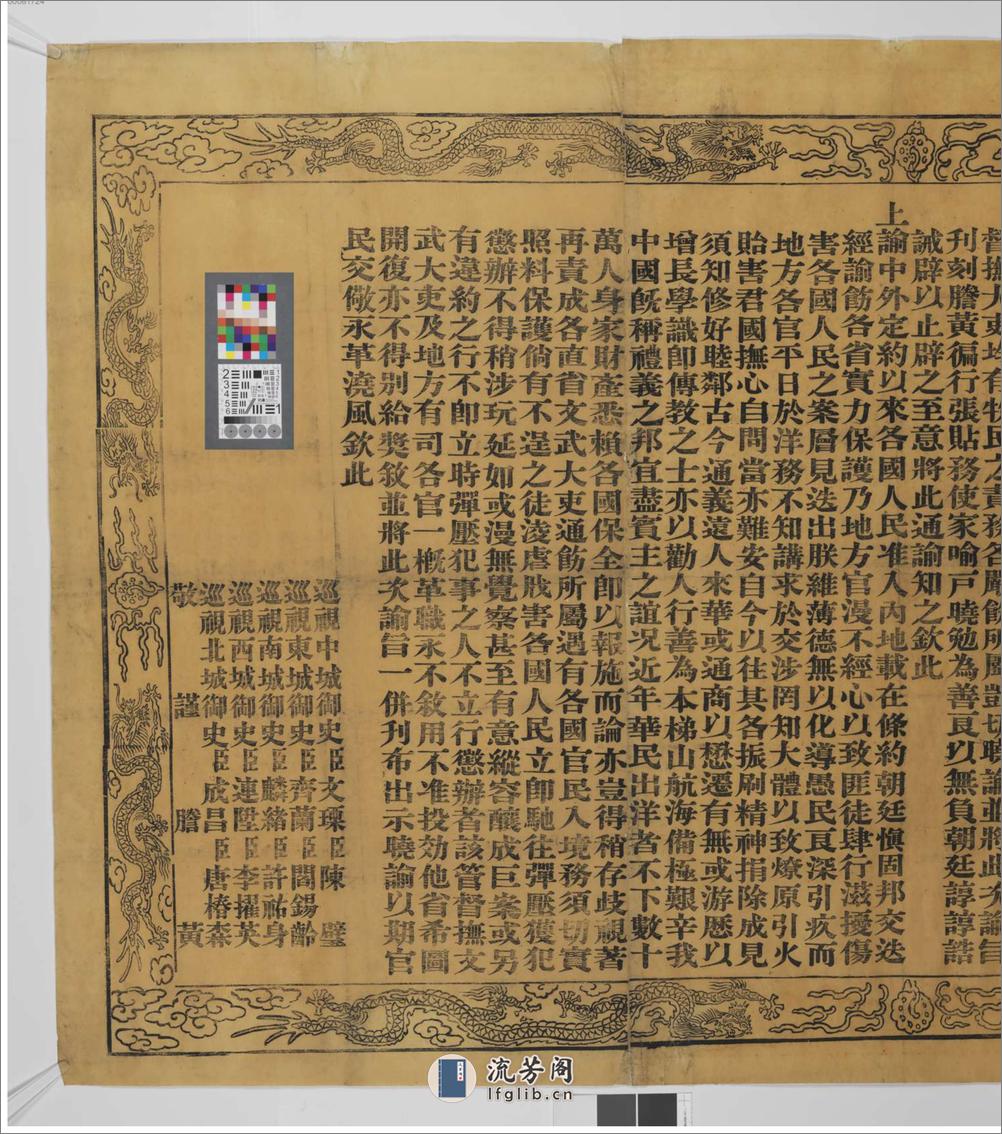 督撫大吏均有牧民之責務各嚴飭所屬剴切聯論並將此次諭旨
刊刻謄黃徧行張貼務使家喻戸曉勉為善良以無負朝廷諄諄誥
誡辟以止辟之至意將此通諭知之欽此
上諭中外定約以來各國人民准入內地載在條約朝廷慎固邦交迭
經諭飭各省實力保護乃地方官漫不經心以致匪徒肆行滋擾傷
害各國人民之案層見迭出朕維薄德無以化導愚民良深引疚而
地方各官平日於洋務不知講求於交涉罔知大體以致燎原引火
貽害君國撫心自問當亦難安自今以往其各振刷精神捐除成見
須知修好睦鄰古今通義遠人來華或通商以懋遷有無或游歷以
增長學識即傳教之士亦以勸人行善為本梯山航海備極艱辛我
中國旣稱禮義之邦宜盡賓主之誼况近年華民出洋者不下數十
萬人身家財產悉賴各國保全即以報施而論亦豈得稍存歧視著
再責成各直省文武大吏通飭所屬遇有各國官民入境務須切實
照料保護倘有不逞之徒淩虐戕害各國人民立即馳往彈壓獲犯
懲辦不得稍涉玩延如或漫無覺察甚至有意縱容釀成巨案或另
有違約之行不即立時彈壓犯事之人不立行懲辦者該管督撫文
武大吏及地方有司各官一概革職永不敘用不准投効他省希圖
開復亦不得別給獎敘並將此次諭旨一併刊布出示曉諭以期官
民交儆永革澆風欽此
巡視中城御史臣文瑮臣陳璧
巡視東城御史臣齊蘭臣閻錫齡
巡視南城御史臣麟緒臣許祐身
巡視西城御史臣連陞臣李擢英
巡視北城御史臣成昌臣唐椿森
敬謹謄黃
流芳阁
lfglib.cn